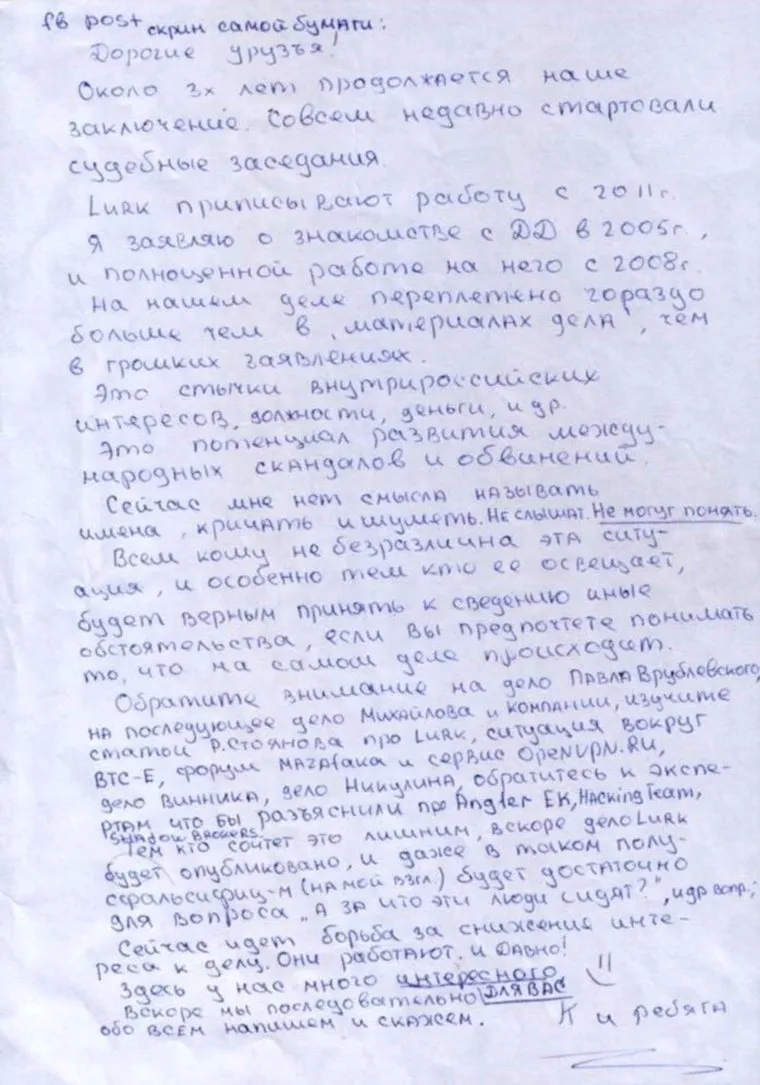 fb post скрин самой бумаги:
Дорогие друзья!
Около 3х лет продолжается наше
заключение. Совсем недавно стартовали
судебные заседания.
Lurk приписывают работу с 2011г.
Я заявляю о знакомстве с ДД в 2005г,
и полноценной работе на него с 2008г.
На нашем деле переплетено гораздо
больше чем в "материалах дела", чем
в громких заявлениях.
Это стычки внутрироссийских
интересов, должности, деньги, и др.
Это потенциал развития между-
народных скандалов и обвинений.
Сейчас мне нет смысла называть
имена, кричать и шуметь. Не слышат. Не могут понять.
Всем кому не безразлична эта ситу-
ация, и особенно тем кто ее освещает,
будет верным принять к сведению иные
обстоятельства, если вы предпочтете понимать
то, что на самом деле происходит.
Обратите внимание на дело Павла Врублевского,
на последующее дело Михайлова и компании, изучите
статьи Р.Стоянова про Lurk, ситуация вокруг
BTC-E, форум MAZAfaka и сервис OpenVPN.Ru,
дело Винника, дело Никулина, обратитесь к экспе-
ртам что бы разъяснили про Angler EK, HAcking Team,
Shadow Brokers.
Тем кто сочтет это лишним, вскоре дело Lurk
будет опубликовано, и даже в таком полу-
сфальсифиц-м (на мой взгл.) будет достаточно
для вопроса "А за что эти люди сидят?", и др вопр.;
Сейчас идет борьба за снижение инте-
реса к делу. Они работают. И давно!
Здесь у нас много интересного
Вскоре мы последовательно для вас
обо всем напишем и скажем. К и ребята